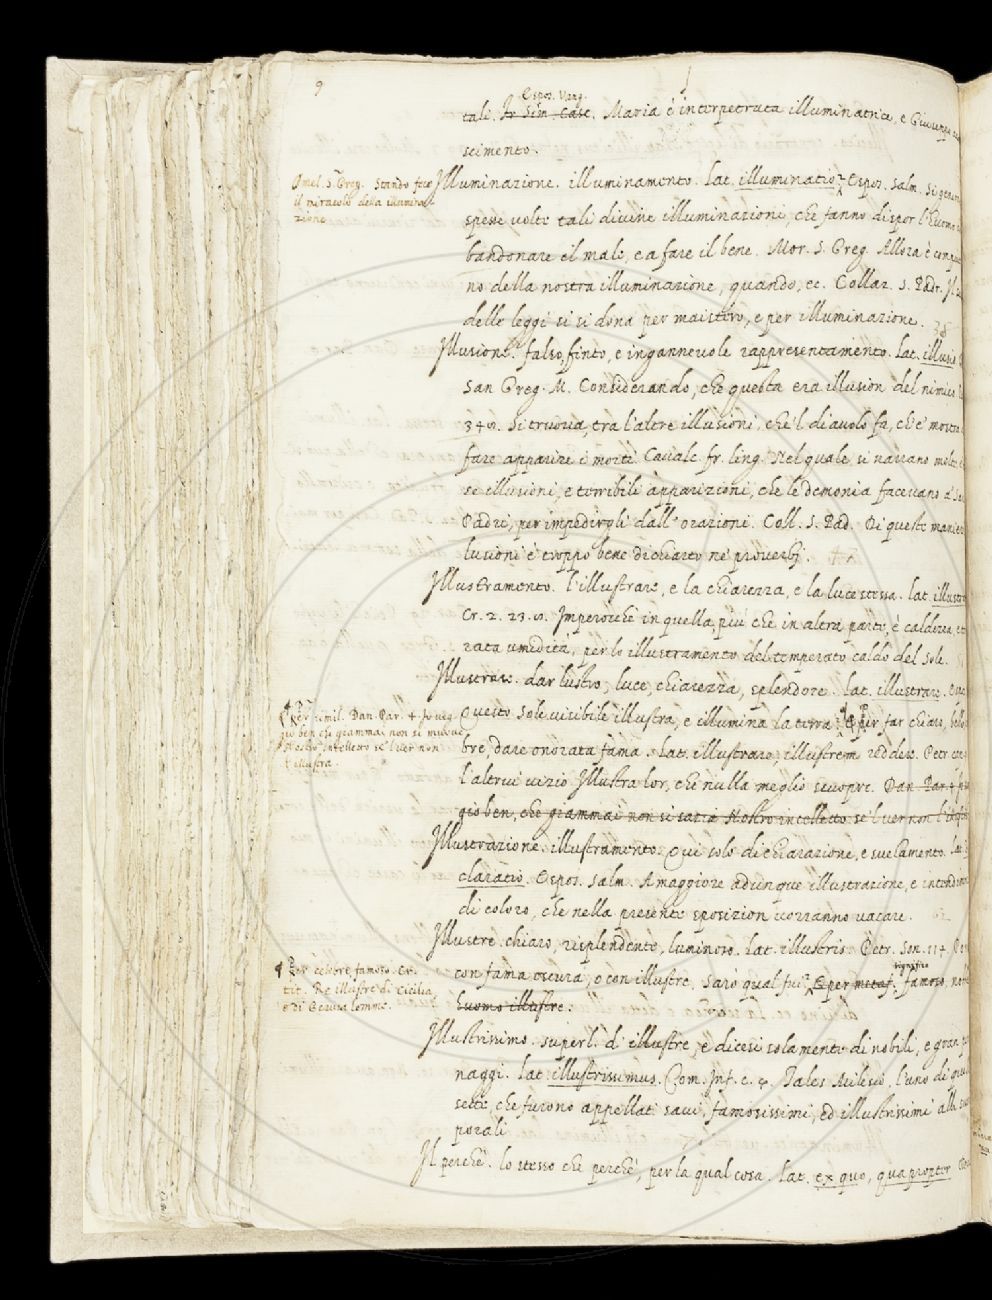 9
Espos. Vang.
tali. Fr. Sim. Casc. Maria è interpetrata illuminatrice, e
scimento.
Omel. S. Greg. Stando fece
il miracolo della illumina-
zione
Illuminazione. illuminamento. Lat. illuminatio. Espos. Salm. Si
spesse volte tali divine illuminazioni, che fanno dispor l'huomo
bandonare il male, e a fare il bene. Mor. S. Greg. Allora è
no della nostra illuminazione, quando, ec. Collaz. S. Padr. Il
delle leggi si si dona per maistero, e per illuminazione.
Illusione. falso, finto, e ingannevole rappresentamento. Lat. illusio
San Greg. M. Considerando, che questa era illusion del nimico
34. Si truova, tra l'altre illusioni, che 'l diavolo fa, ch'e' mostra
fare apparire i morti. Cavalc. fr. ling. Nel quale si narrano molte
se illusioni, e terribili apparizioni, che le demonia facevano a'
Padri, per impedirgli dall'orazioni. Coll. S. Pad. Di queste
lusioni è troppo bene dichiarto ne' proverbj.
Illustramento. l'illustrare, e la chiarezza, e la luce stessa. Lat. illustra
Cr. 2. 23. Imperocchè in quella, più che in altra parte, è caldezza,
rata umidità, per lo illustramento del temperato caldo del Sole.
Illustrare. dar lustro, luce, chiarezza, splendore. Lat. illustrare.
Per simil. Dan. Par. 4. Io veg-
gio ben che giammai non si
Nostro intelletto se 'l ver non
l'illustra.
Questo Sole visibile illustra, e illumina la terra. E per far chiaro,
bre, dare onorata fama. Lat. illustrare, illustrem reddere. Petr.
l'altrui vizio Illustra lor, che nulla meglio scuopre. Dan. Par. 4.
gio ben, che giammai non si sazia Nostro intelletto se 'l ver non l'
Illustrazione. illustramento. Qui solo dichiarazione, e svelamento.
claratio. Espos. Salm. A maggiore adunque illustrazione, e
di coloro, che nella presente sposizion vorranno vacare.
Illustre. chiaro, risplendente, luminoso. Lat. illustris. Petr. Son. 114.
Per celebre, famoso. Cr.
tit. Re illustre di Cicilia,
e di Gerusalemme.
significa
con fama oscura, o con illustre, Sarò qual fui. E per metaf. famoso,
huomo illustre.
Illustrissimo. superl. d'illustre, e dicesi solamente di nobili, e gran
naggi. Lat. illustrissimus. Com. Inf. c. 4. Tales Milesio, l'uno di
sette, che furono appellati savi, famosissimi, ed illustrissimi alli
porali.
Il perchè. lo stesso che perchè, per la qual cosa. Lat. ex quo, quapropter.